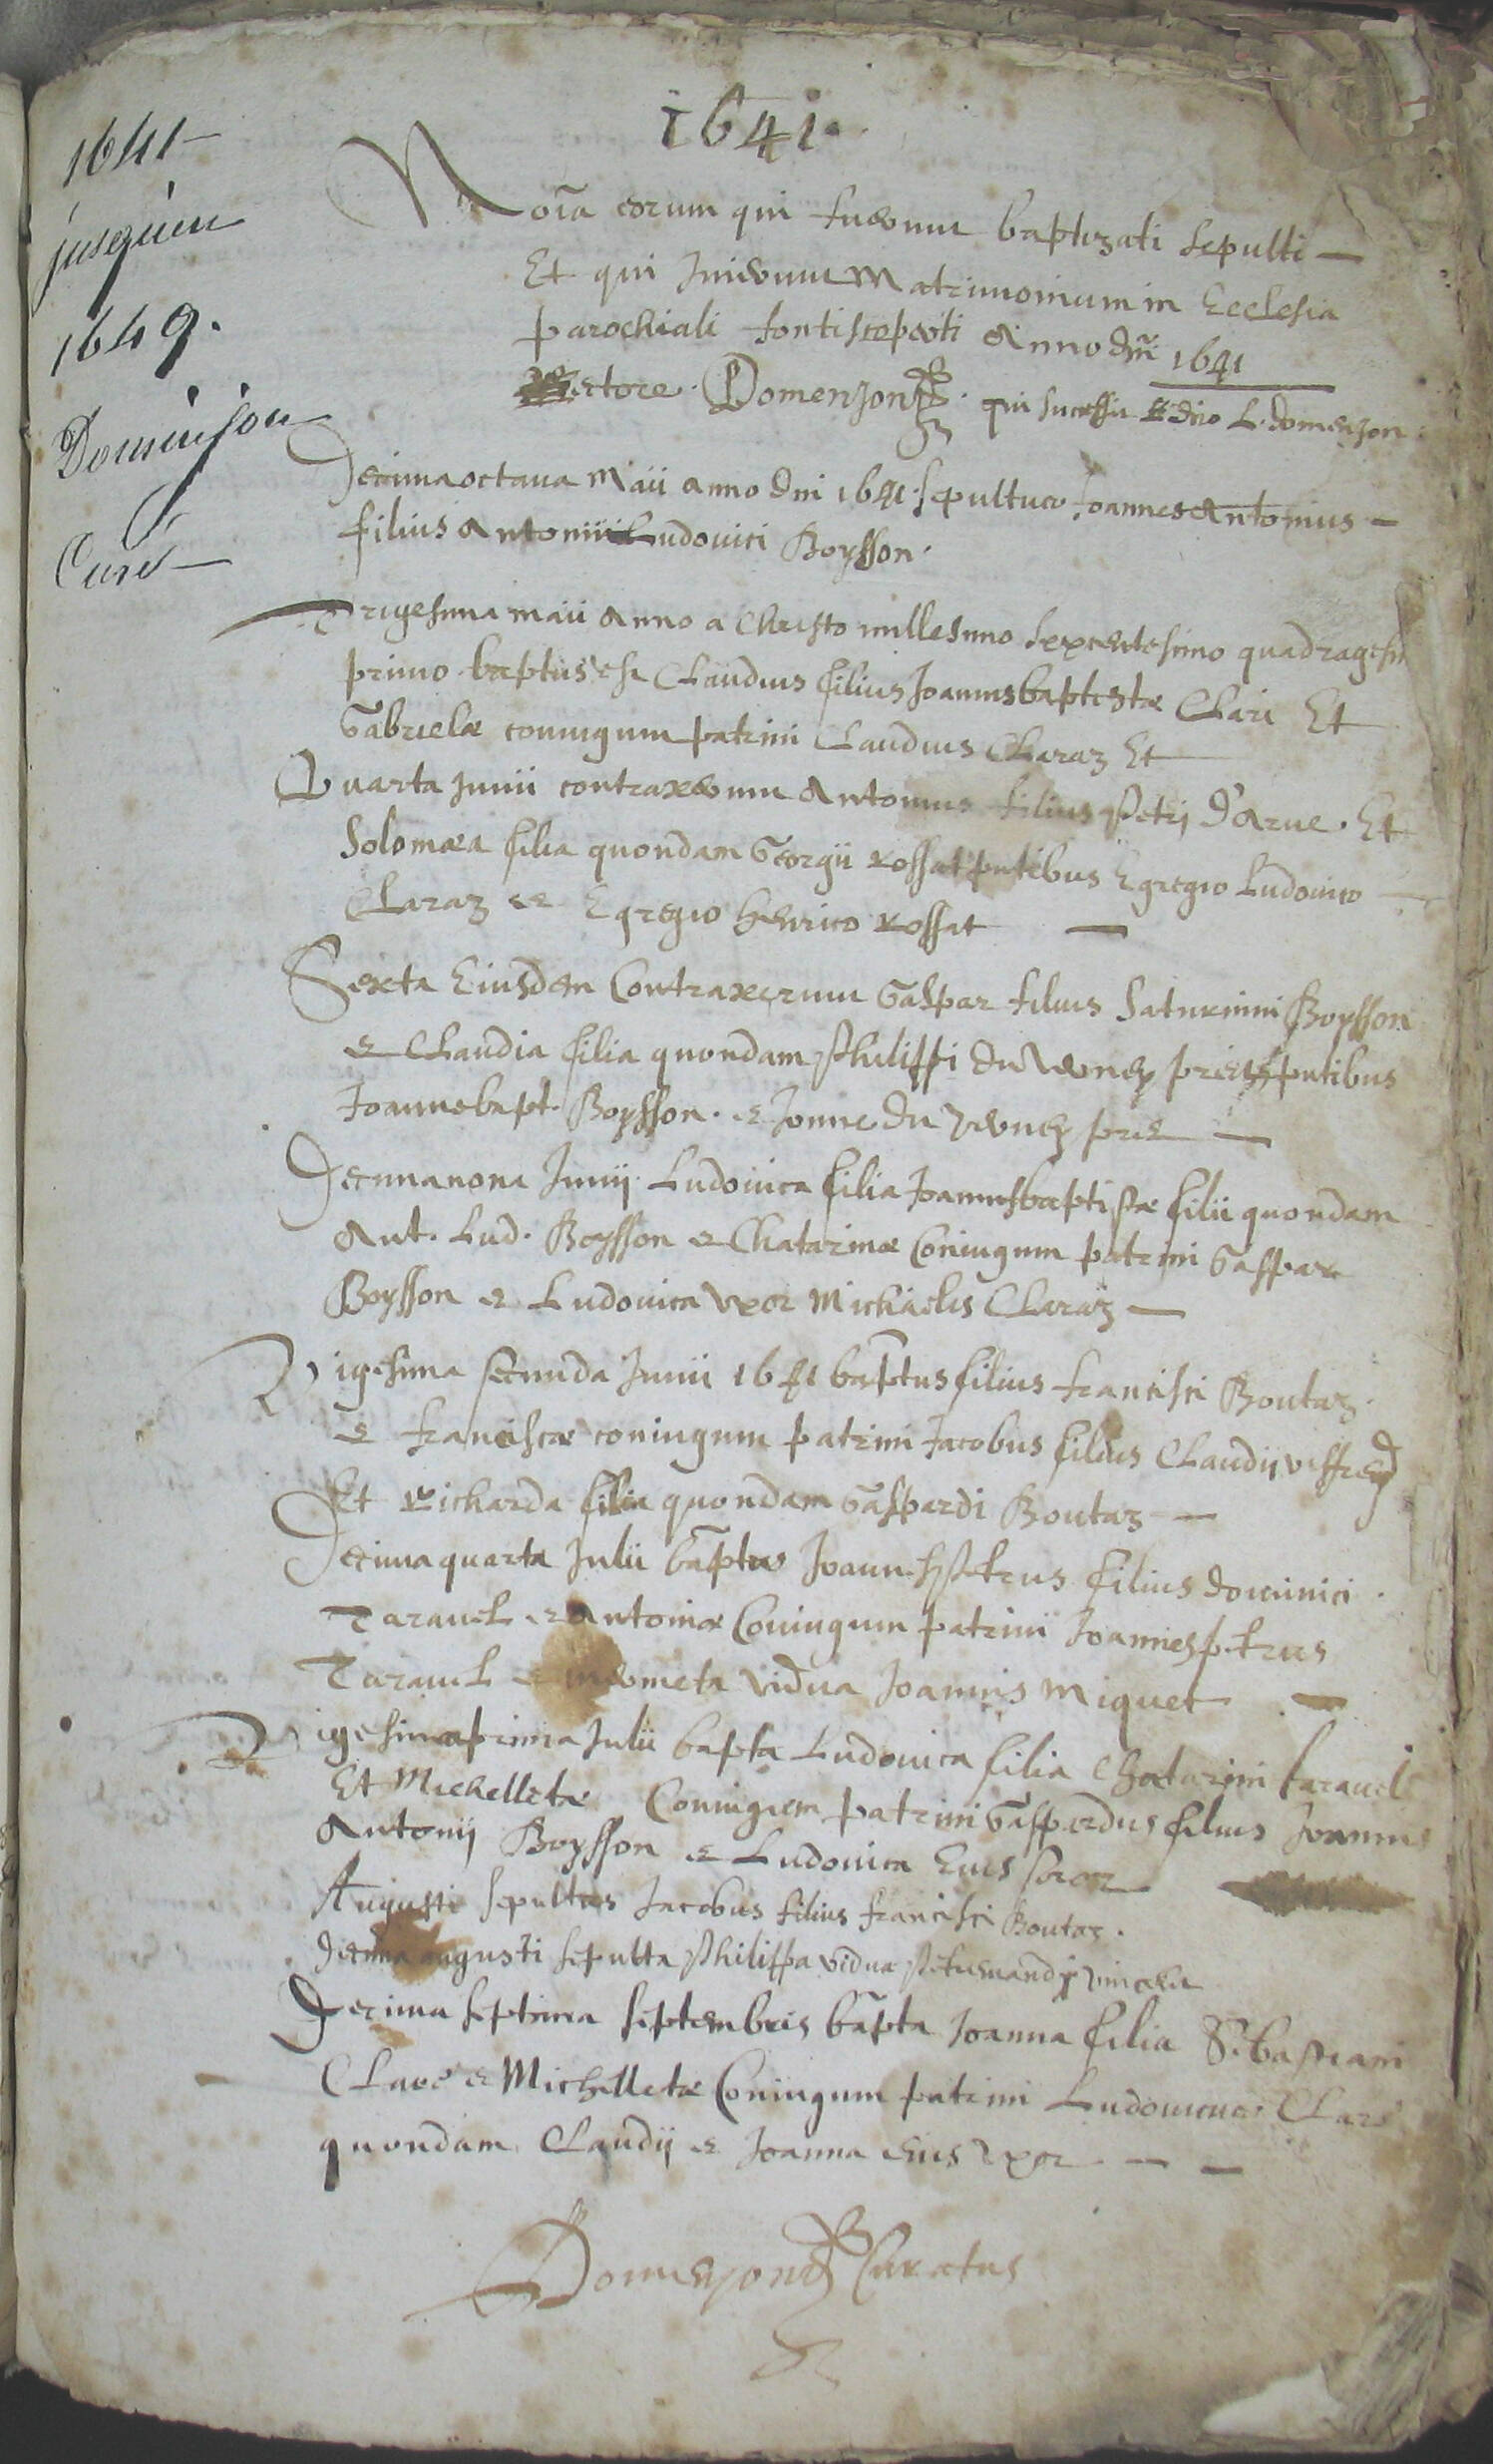 1641
jusqu'en
1649.
Domenjon
Curé
1641.
Noīa eorum qui fuerunt baptizati sepulti
Et qui Inierunt Matrimonium in Ecclesia
parochiali fontiscoperti Anno dn̄i 1641
Rectore Domenjon qui sucessit R dno L. domenjon
Decima octava Maii anno dni 1641 sepultus Joannes Antonius
filius Antonii Ludovici Boysson.
Trigesima maii Anno a Christo millesimo sexcentesimo quadragesi
primo baptus est Claudius filius Joannis baptistæ Clari Et
Gabrielæ coniugum patrini Claudius Claraz Et
Quarta Junii contraxerunt Antonius filius Petri d'Arve. Et
Solomæa filia quondam Georgii Rossat pntibus Egregio Ludovico
Claraz et Egregio henrico Rossat
Sexta Eiusdem Contraxerunt Gaspar filius Saturnini Boysson
et Claudia filia quondam Philippi du Verney pntibus
Joannebapt. Boysson. et Jonne du verney
Decimanona Junij Ludovica filia Joannisbaptistæ filii quondam
Ant. Lud. Boysson et Chatarinæ Coniugum patrini Gaspar
Boysson et Ludovica vxor Michaelis Claraz
Vigesima secunda Junii 1641 bap̄tus filius francisci Boutaz.
et franciscæ coniugum patrini Jacobus filius Claudij
Et Richarda filia quondam Gaspardi Boutaz
Decima quarta Julii bap̄tus Joannes petrus filius dominici
Taravel et Antoniæ Coniugum patrini Joannes petrus
Taravel et vidua Joannis Miquet
Vigesima prima Julii bapta Ludovica filia Chatarini taravel
Et Michelletæ Coniugum patrini Gaspardus filius Joannis
Antonij Boysson et Ludovica Eius soror
Augusti sepultus Jacobus filius francisci Boutaz.
decima augusti sepulta Philippa vidua
Decima septima septembris bap̄ta Joanna filia Sebastiani
Claré et Michelletæ Coniugum patrini Ludovicus Claré
quondam Claudij et Joanna eius vxor
Domenjon Curatus